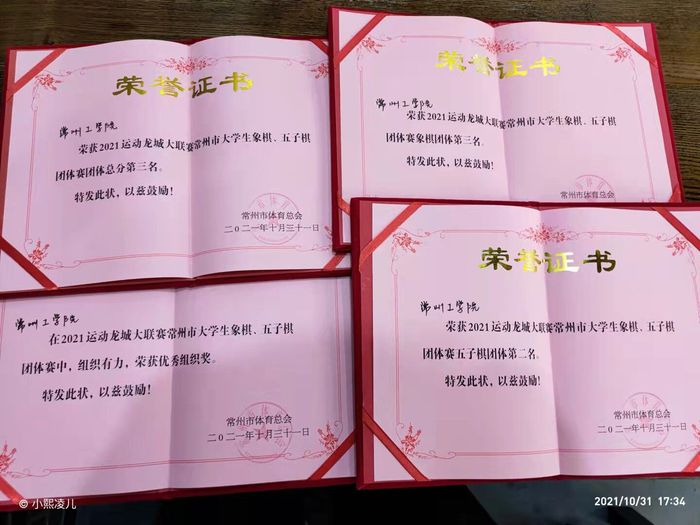 荣誉证书
常州工学院
荣获2021运动龙城大联赛常州市大学生象棋、五子棋
团体赛团体总分第三名。
特发此状，以兹鼓励！
常州市体育总会
二〇二一年十月三十一日
荣誉证书
常州工学院
荣获2021运动龙城大联赛常州市大学生象棋、五子棋
团体赛象棋团体第三名。
特发此状，以兹鼓励！
常州市体育总会
常州工学院
在2021运动龙城大联赛常州市大学生象棋、五子棋
团体赛中，组织有力，荣获优秀组织奖。
特发此状，以兹鼓励！
常州市体育总会
二〇二一年十月三十一日
荣誉证书
常州工学院
荣获2021运动龙城大联赛常州市大学生象棋、五子棋
团体赛五子棋团体第二名。
特发此状，以兹鼓励！
常州市体育总会
二〇二一年十月三十一日
© 小熙凌儿
2021/10/31 17:34